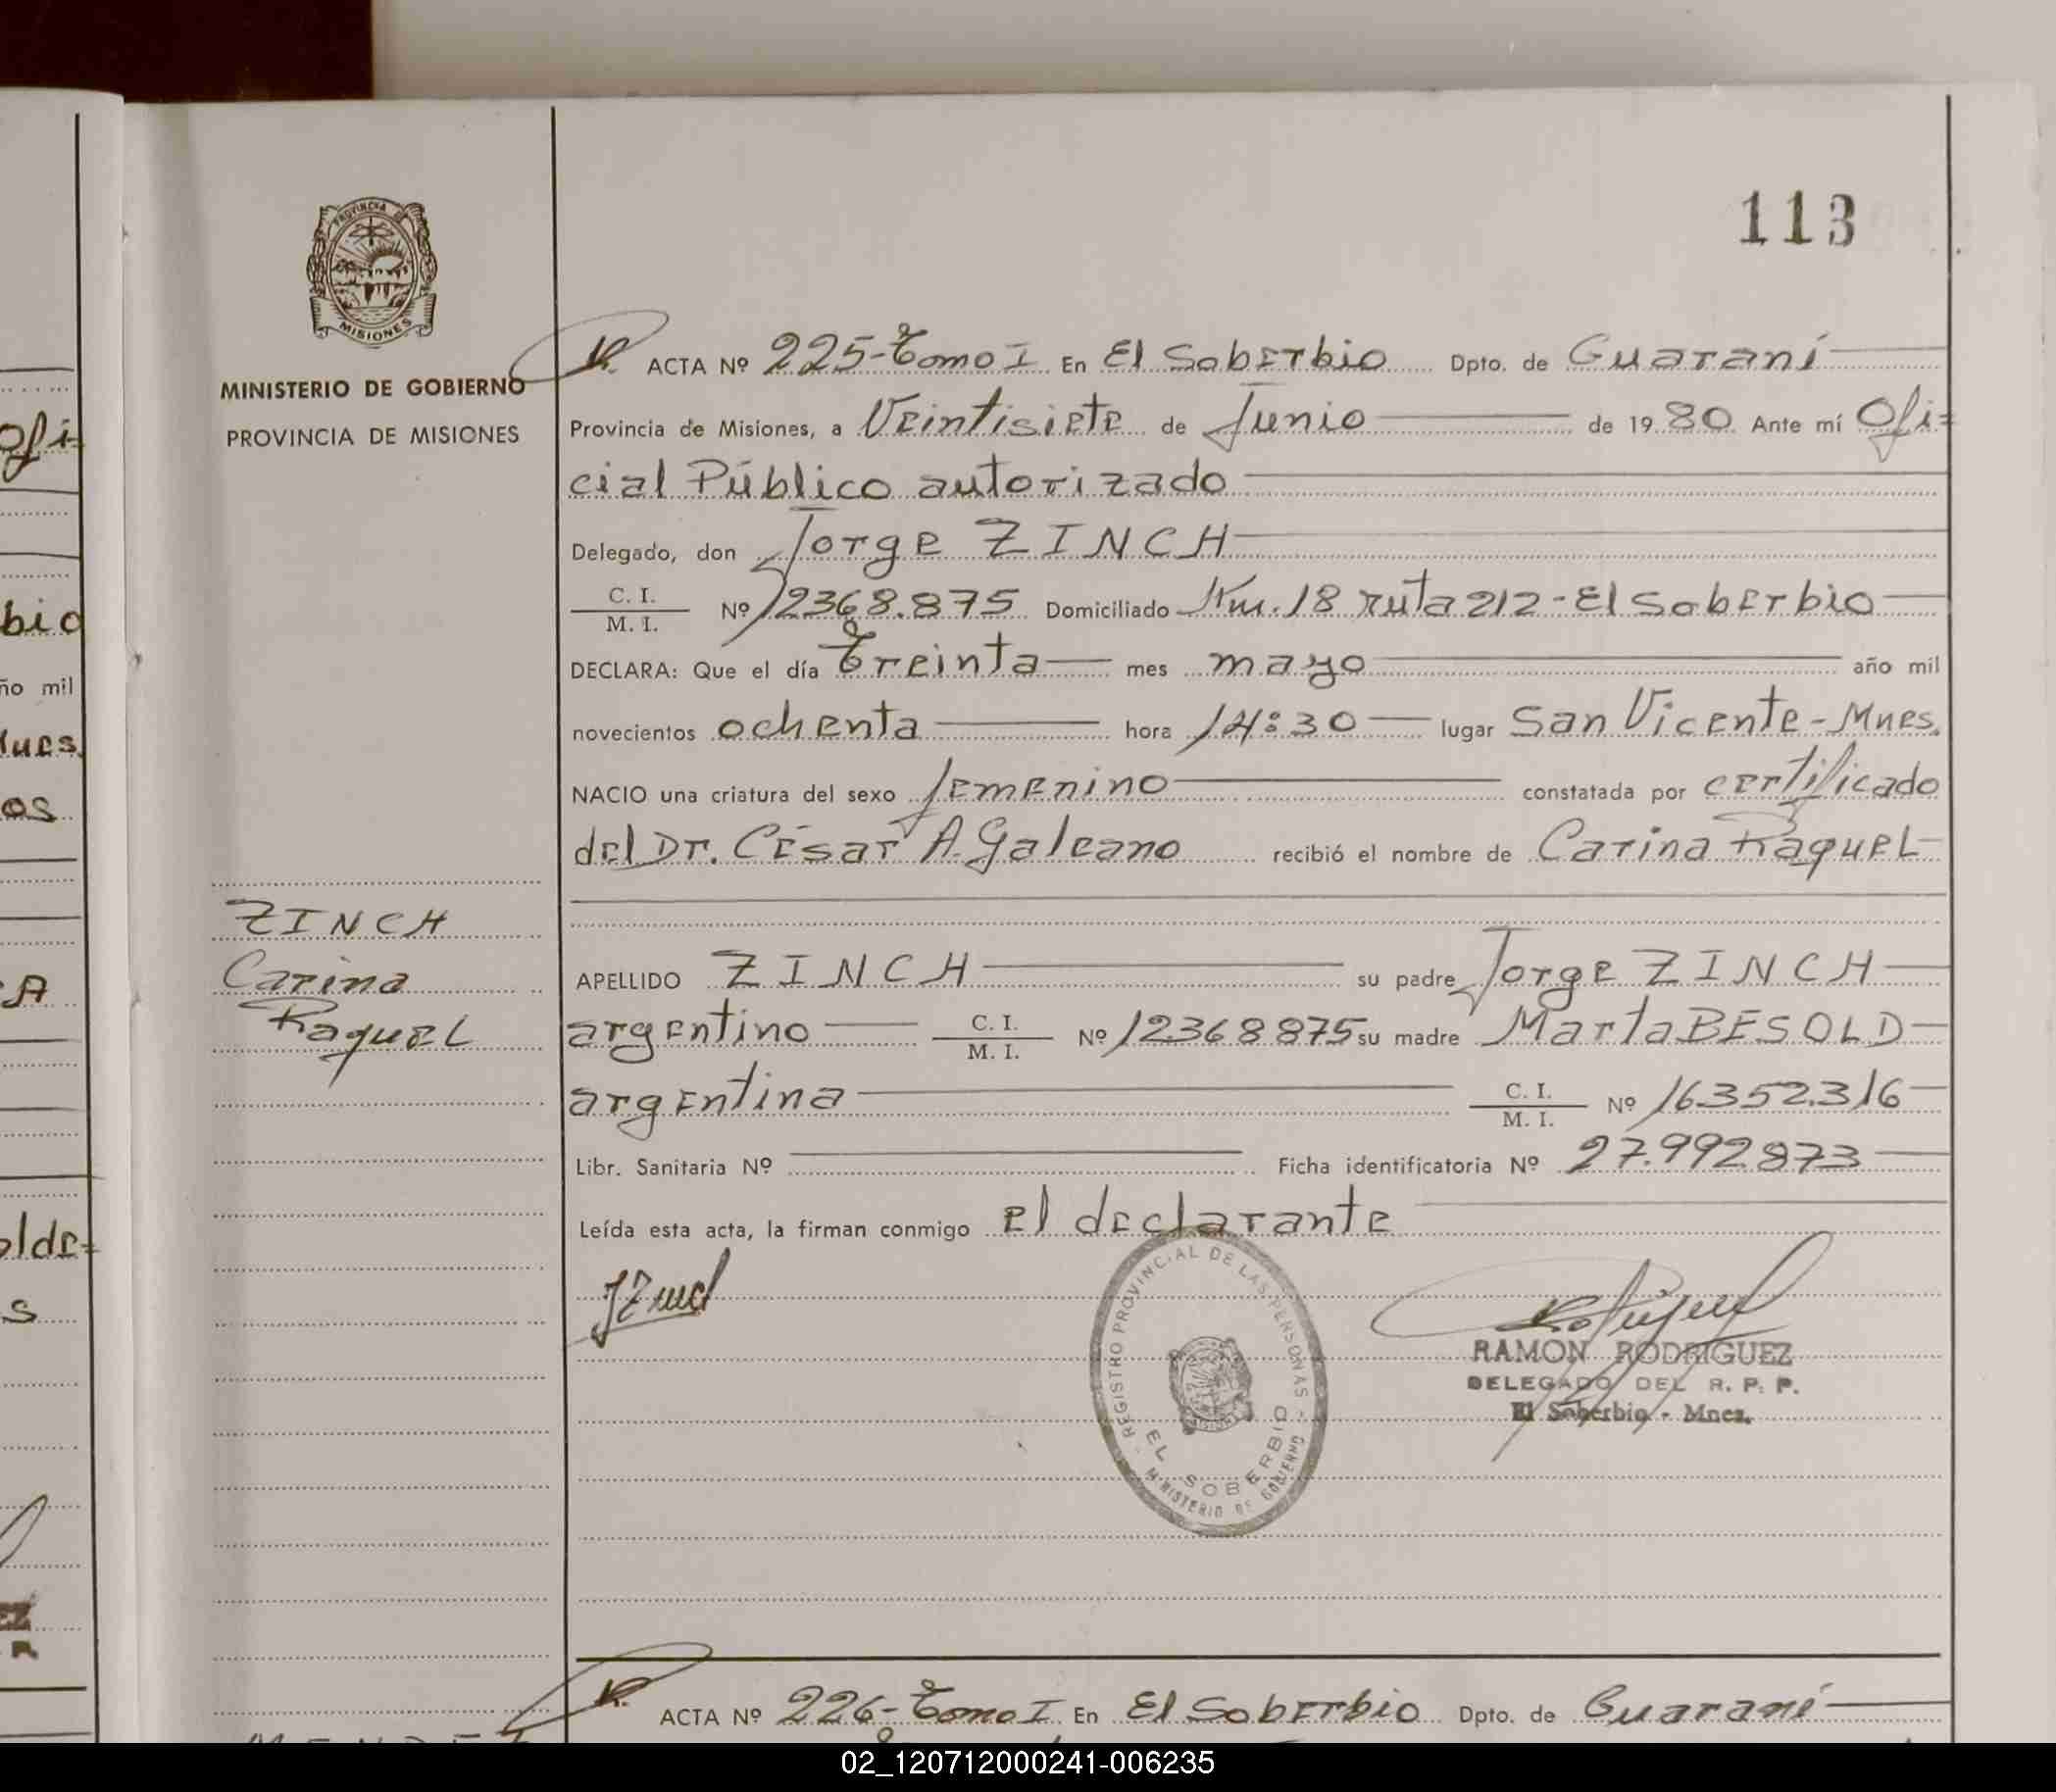 113
PROVINCIA DE
MISIONES
MINISTERIO DE GOBIERNO
PROVINCIA DE MISIONES
ACTA Nº 225-Tomo I En El Soberbio Dpto. de Guaraní
Provincia de Misiones, a Veintisiete de Junio de 1980 Ante mí Ofi=
cial Público autorizado
Delegado, don Jorge ZINCH
C. I.
M. I. Nº 12368.875 Domiciliado Km. 18 ruta 212-El Soberbio
DECLARA: Que el día Treinta mes mayo año mil
novecientos ochenta hora 14:30 lugar San Vicente-Mnes.
NACIO una criatura del sexo femenino constatada por certificado
del Dr. César A. Galeano recibió el nombre de Carina Raquel
ZINCH
Carina
Raquel
APELLIDO ZINCH su padre Jorge ZINCH
argentino C. I.
M. I. Nº 12368875 su madre Marta BESOLD
argentina C. I.
M. I. Nº 16352.316
Libr. Sanitaria Nº Ficha identificatoria Nº 27.992873
Leída esta acta, la firman conmigo el declarante
REGISTRO PROVINCIAL DE LAS PERSONAS
EL SOBERBIO
MINISTERIO DE GOBIERNO
RAMON RODRIGUEZ
DELEGADO DEL R. P. P.
El Soberbio - Mnes.
ACTA Nº 226-Tomo I En El Soberbio Dpto. de Guaraní
02_120712000241-006235